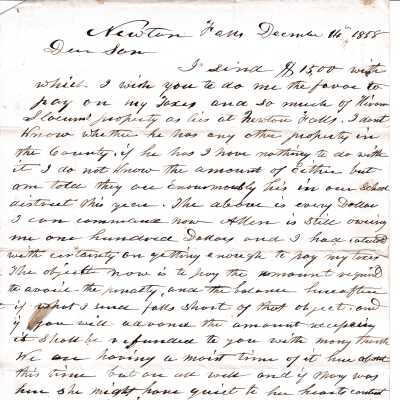 Newton Falls December 14th 1858
Dear Son
I send $15.00 with
which I wish you to do me the favor to
pay on my Taxes and so much of Hiram
Slocums property as lies at Newton Falls. I dont
Know whether he has any other property in
the County, if he has I have nothing to do with
it I do not know the amount of Either but
am told they are Enormously high in our School
district this year. The above is every Dollar
I can command now Allen is still owing
me one hundred Dollars and I had
with certainty on getting enough to pay my taxes
The object now is to pay the amount requird
to avoid the penalty, and the balance hereafter
if what I send falls short of that object. and
if you will advance the amount necessary
it shall be refunded to you with many thanks
We are having a moist time of it here about
this time but are all well and if May was
here she might have quiet to her hearts content